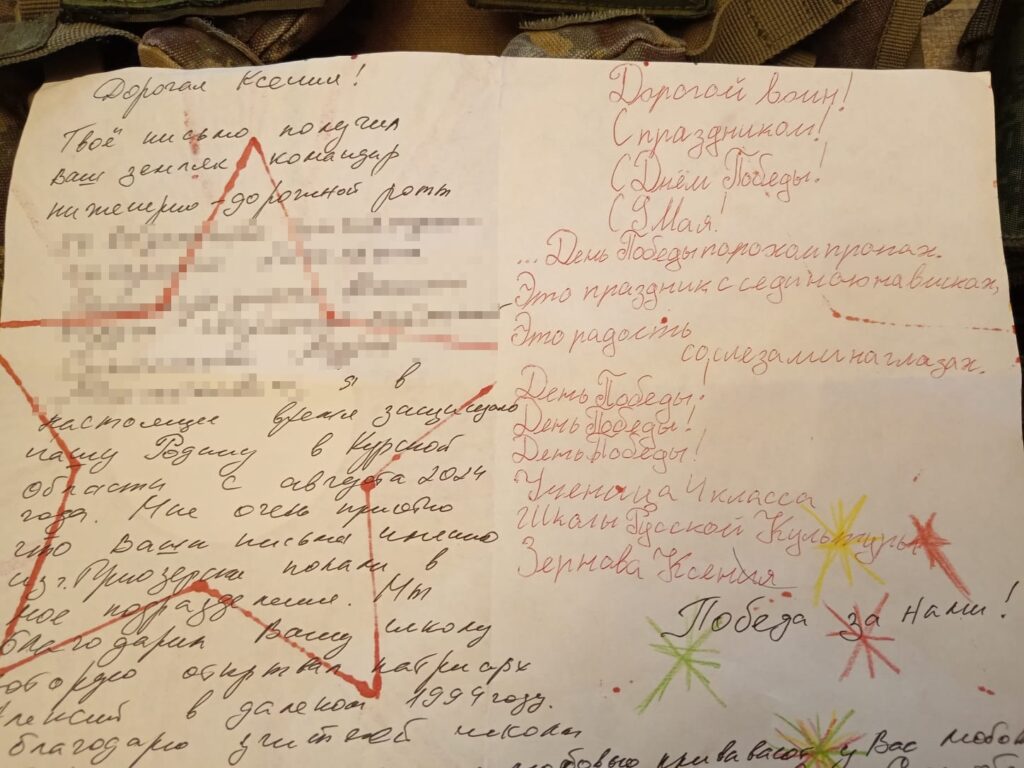 Дорогая Ксения!
Твоё письмо получил
ваш земляк командир
инженерно-дорожной роты
я в
настоящее время защищаю
нашу Родину в Курской
области с августа 2024
года. Мне очень приятно
что Ваши письма именно
из г. Приозерска попали в
мое подразделение. Мы
благодарим Вашу школу
которую открыл патриарх
Алексий в далеком 1994 году.
благодарю учителей школы
Дорогой воин!
С праздником!
С Днём Победы!
С 9 Мая!
... День Победы порохом пропах.
Это праздник с сединою на висках,
Это радость
со слезами на глазах.
День Победы!
День Победы!
День Победы!
Ученица 4 класса
Школы Русской Культуры
Зернова Ксения
Победа за нами!
любовью прививают у Вас любовь